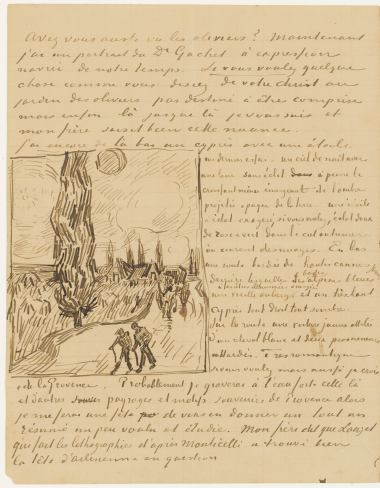 Avez vous aussi vu les oliviers? Maintenant
j'ai un portrait du Dr Gachet à expression
navrée de notre temps. Si vous voulez quelque
chose comme vous disiez de votre Christ au
jardin des oliviers pas destiné à être comprise
mais enfin là jusque là je vous suis et
mon frère saisit bien cette nuance.
j'ai encore de là bas un cyprès avec une étoile
un dernier essai - un ciel de nuit avec
une lune sans éclat à peine le
croissant mince émergeant de l'ombre
projetée opaque de la terre - une étoile
à éclat exagéré, si vous voulez, éclat doux
de rose et vert dans le ciel outremer
où courent des nuages. En bas
une route bordée de hautes cannes
derrière lesquelles les basses alpines bleues
une vieille auberge à fenêtres illuminées orangée et un très haut
cyprès tout droit tout sombre
Sur la route une voiture jaune attelée
d'un cheval blanc et deux promeneurs
attardés. Très romantique
si vous voulez mais aussi je crois
de la Provence. Probablement je graverai à l'eau forte celle là
et d'autres paysages et motifs souvenirs de Provence alors
je me ferai une fête de vous en donner un tout un
résumé un peu voulu et étudié. Mon frère dit que Lauzet
qui fait les lithographies d'après Monticelli a trouvé bien
la tête d'arlésienne en question